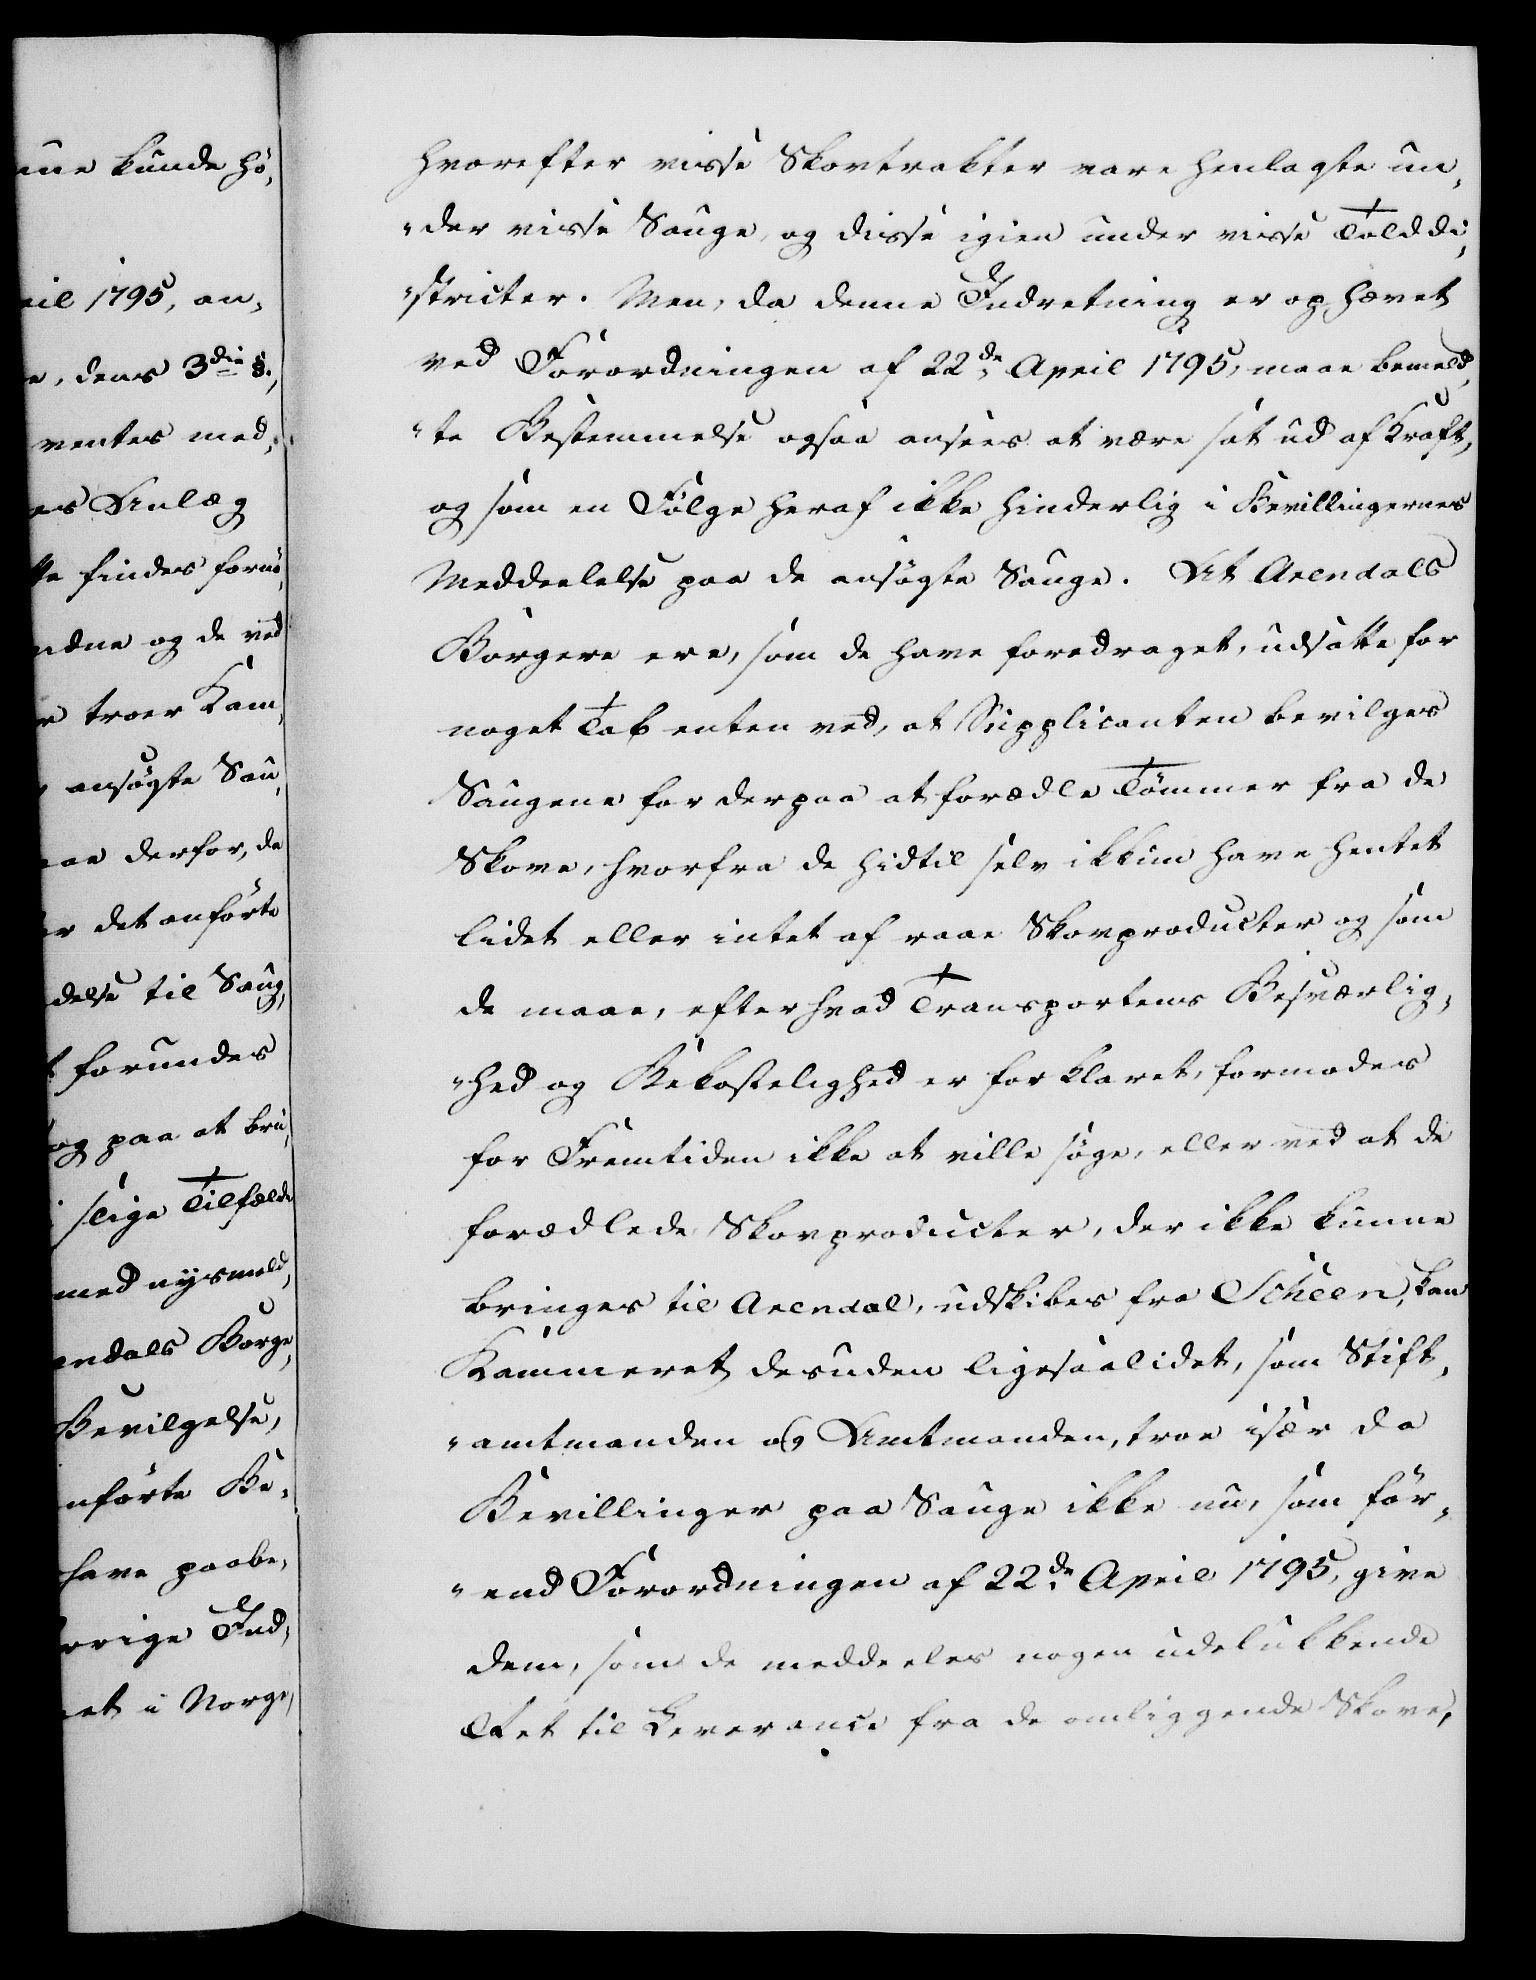 une kunde hö„
ril 1795, an„
e, dens 3die §.,
ventes med„
es Anlæg
te findes fornö„
ndne og de ved
r troer Kam„
ansøgte Sau„
aae derfor, da
er det anførte
delse til Saug„
t forundes
og paa at bru„
slige Tilfælde
med nysmeld„
endals Borge„
Bevilgelse,
nførte Be„
have paabe„
rrige Ind„
et i Norge,
hvorefter visse Skovtrakter vare henlagte un„
„der visse Sauge, og disse igien under visse Tolddi„
„stricter. Men, da denne Indretning er ophævet
ved Forordningen af 22de April 1795, maae bemeld„
„te Bestemmelse ogsaa ansees at være sat ud af Kraft,
og som en Følge heraf ikke hinderlig i Bevillingernes
Meddeelelse paa de ansøgte Sauge. At Arendals
Borgere ere, som de have foredraget, udsatte for
noget Tab enten ved, at Supplicanten bevilges
Saugene for derpaa at forædle Tömmer fra de
Skove, hvorfra de hidtil selv ikkun have hentet
lidet eller intet af raae Skovproducter og som
de maae, efter hvad Transportens Besværlig„
„hed og Bekostelighed er forklaret, formodes
for Fremtiden ikke at ville søge, eller ved at de
forædlede Skovproducter, der ikke kunne
bringes til Arendal, udskibes fra Scheen, kan
Kammeret desuden ligesaalidet, som Stift„
„amtmanden og Amtmanden, troe især da
Bevillinger paa Sauge ikke nu, som för„
„end Forordningen af 22de April 1795, give
dem, som de meddeeles nogen udelukkende
Ret til Leverance fra de omliggende Skove,